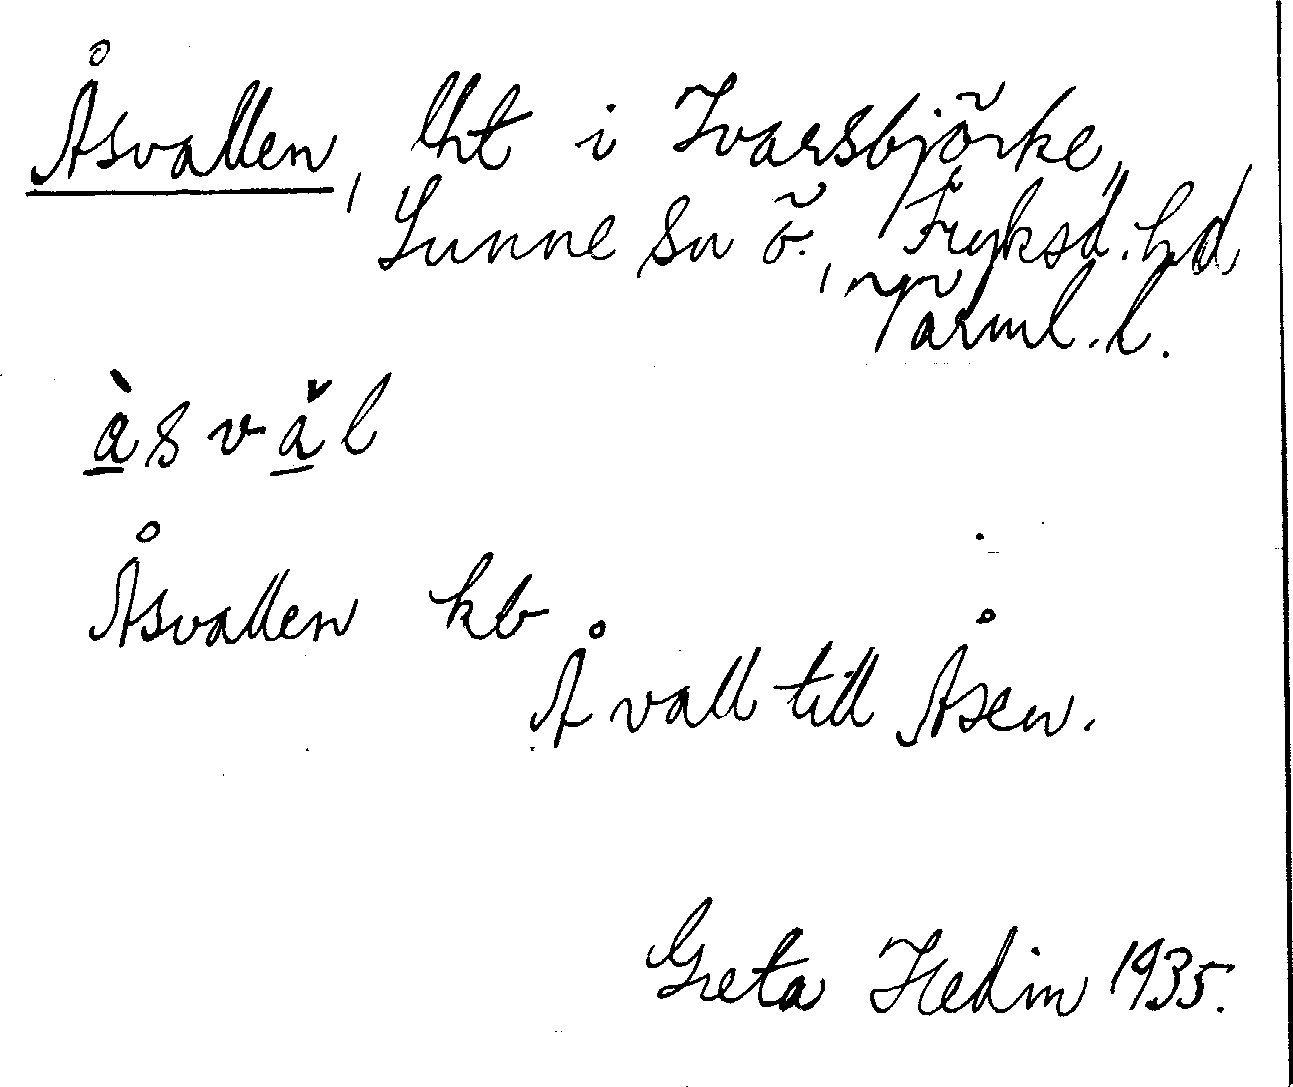 Åsvallen, lht i Ivarsbjörke,
Sunne sn ö., Fryksd. hd,
Värml. l.
à̱svǎ̱l
Åsvallen kb
Å vall till Åsen.
Greta Hedin 1935.